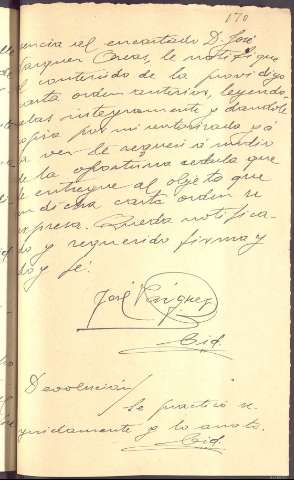 170
encia el encartado D. José
Vazquez Oreas, le notifique
el contenido de la provid.ª y
carta orden anterior, leyendo-
selas integramente y dandole
copia por mi autorizada y á
su vez le requeri á medio
de la oportuna cedula que
le entregue al objeto que
en dicha carta orden se
expresa. Queda notifica-
do y requerido firma y
doy fé.
José Vazquez
Cid.
Devolución /
Se practicó se-
guidamente y lo anoto.
Cid.